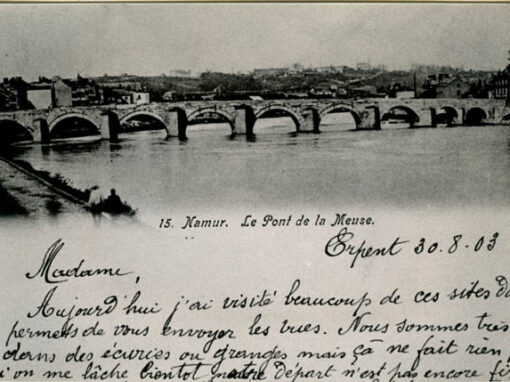 15. Namur. Le Pont de la Meuse.
Erpent 30.8-03
Madame,
Aujourd'hui j'ai visité beaucoup de ces sites
permets de vous envoyer les vues. Nous sommes très
dans des écuries ou granges mais ça ne fait rien,
on me lâche bientôt notre départ n'est pas encore